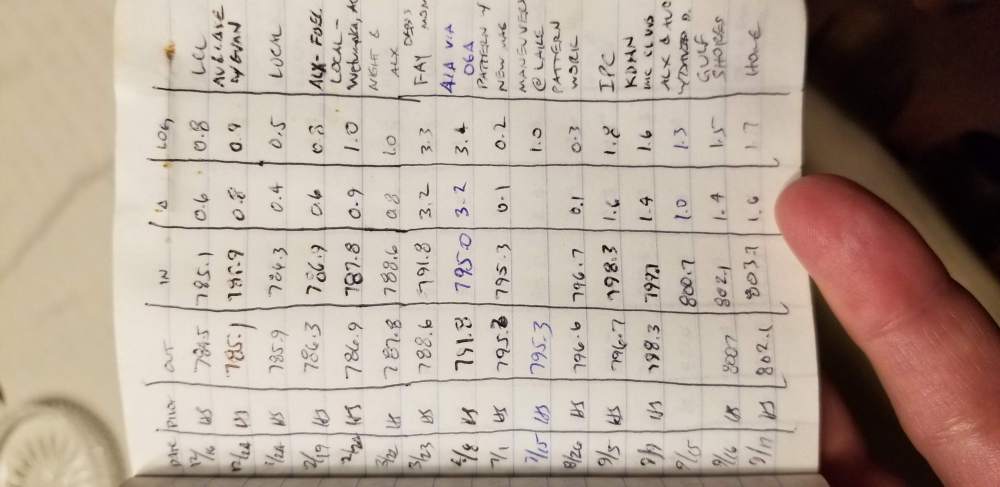 DATE PILOT OUT IN Δ LOG
12/16 HS 784.5 785.1 0.6 0.8 LCL
HS 785.1 785.9 0.8 0.9
w/ EVAN
1/24 HS 785.9 786.3 0.4 0.5 LOCAL
2/19 HS 786.3 786.9 0.6 0.8 ALX-FUEL
2/20 HS 786.9 787.8 0.9 1.0 LOCAL -
Wetumpka, AL
3/22 HS 787.8 788.6 0.8 1.0 NIGHT &
ALX
3/23 HS 788.6 791.8 3.2 3.3 FAY MOM
6/8 HS 791.8 795.0 3.2 3.4 41A VIA
06A
7/1 HS 795.2 795.3 0.1 0.2 PATTERN
NEW MAG
7/15 HS 795.3 1.0 MANEUVERS
@ LAKE
8/26 HS 796.6 796.7 0.1 0.3 PATTERN
WORK
9/5 HS 796.7 798.3 1.6 1.8 IPC
9/7 HS 798.3 799.7 1.4 1.6 KDHN
IMC CLUB
9/15 800.7 1.0 1.3 ALX & AUO
9/16 HS 800.7 802.1 1.4 1.5 GULF
SHORES
9/17 HS 802.1 803.7 1.6 1.7 HOME